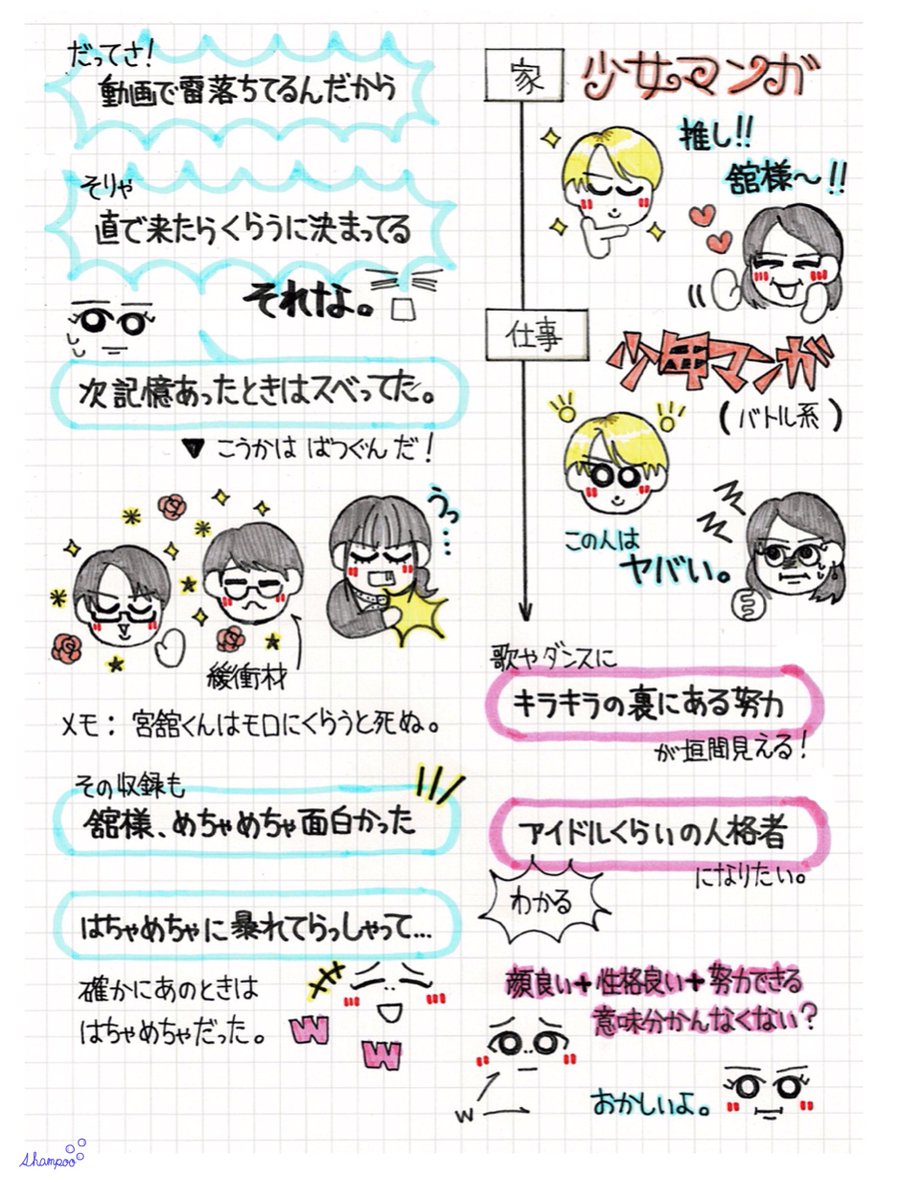 だってさ!
動画で雷落ちてるんだから
そりゃ
直で来たらくらうに決まってる
それな。
次記憶あったときはスベってた。
▼こうかは ばつぐんだ!
うっ…
緩衝材
メモ: 宮舘くんはモロにくらうと死ぬ。
その収録も
舘様、めちゃめちゃ面白かった
はちゃめちゃに暴れてらっしゃって…
確かにあのときは
はちゃめちゃだった。
W
W
家
少女マンガ
推し!!
舘様~!!
仕事
少年マンガ
(バトル系)
この人は
ヤバい。
歌やダンスに
キラキラの裏にある努力
が垣間見える!
アイドルくらいの人格者
になりたい。
わかる
顔良い+性格良い+努力できる
意味分かんなくない?
w
おかしいよ。
Shampoo